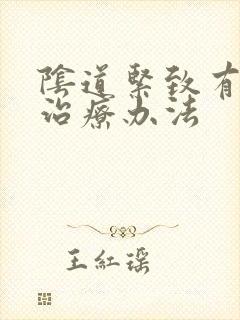 陰道緊致有
治療办法
王紅瑶